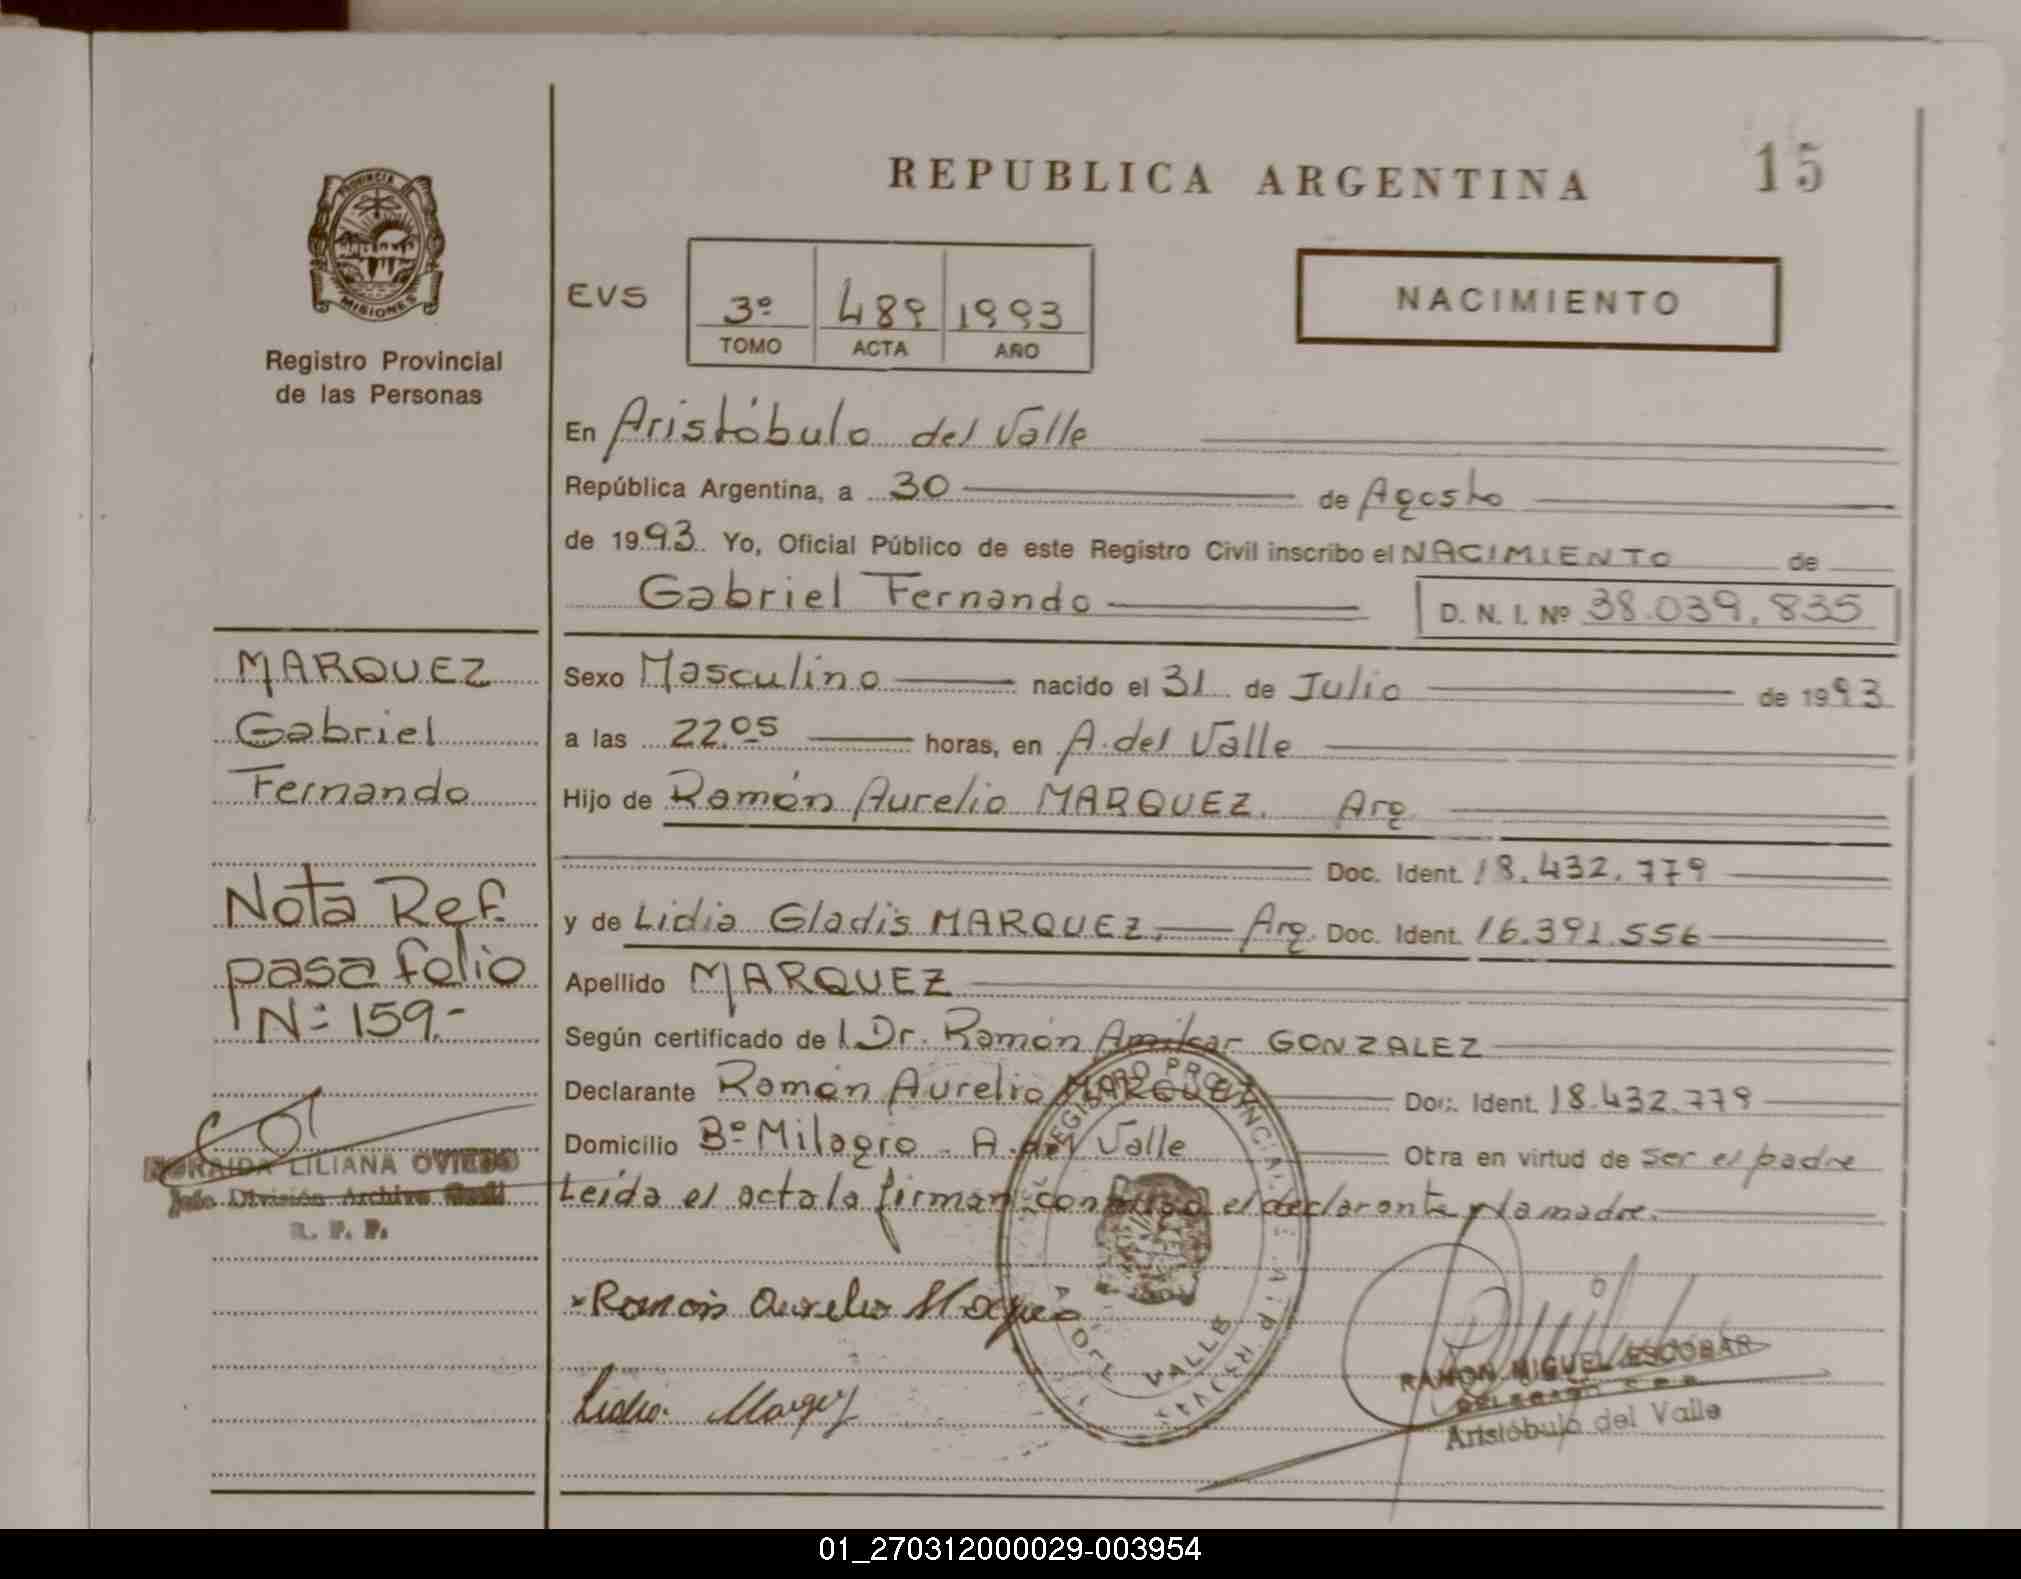 REPUBLICA ARGENTINA
15
PROVINCIA DE
MISIONES
Registro Provincial
de las Personas
EVS
3º 489 1993
TOMO ACTA AÑO
NACIMIENTO
En Aristóbulo del Valle
República Argentina, a 30 de Agosto
de 1993. Yo, Oficial Público de este Registro Civil inscribo el NACIMIENTO de
Gabriel Fernando D. N. I. Nº 38.039.835
MARQUEZ
Gabriel
Fernando
Sexo Masculino nacido el 31 de Julio de 1993
a las 22.05 horas, en A. del Valle
Hijo de Ramón Aurelio MARQUEZ. Arg.
Doc. Ident. 18.432.779
y de Lidia Gladis MARQUEZ. Arg. Doc. Ident. 16.391.556
Apellido MARQUEZ
Según certificado de Dr. Ramón Amilcar GONZALEZ
Declarante Ramón Aurelio MARQUEZ Doc. Ident. 18.432.779
Domicilio Bº Milagro - A. del Valle Otra en virtud de ser el padre
Leída el acta la firman conmigo el declarante y la madre.
Nota Ref.
pasa folio
Nº 159.-
NORAIDA LILIANA OVIEDO
Jefe División Archivo Gral
R. P. P.
Ramón Aurelio Marquez
Lidia Marquez
REGISTRO PROVINCIAL DE
VALLE
RAMON MIGUEL ESCOBAR
Aristóbulo del Valle
01_270312000029-003954